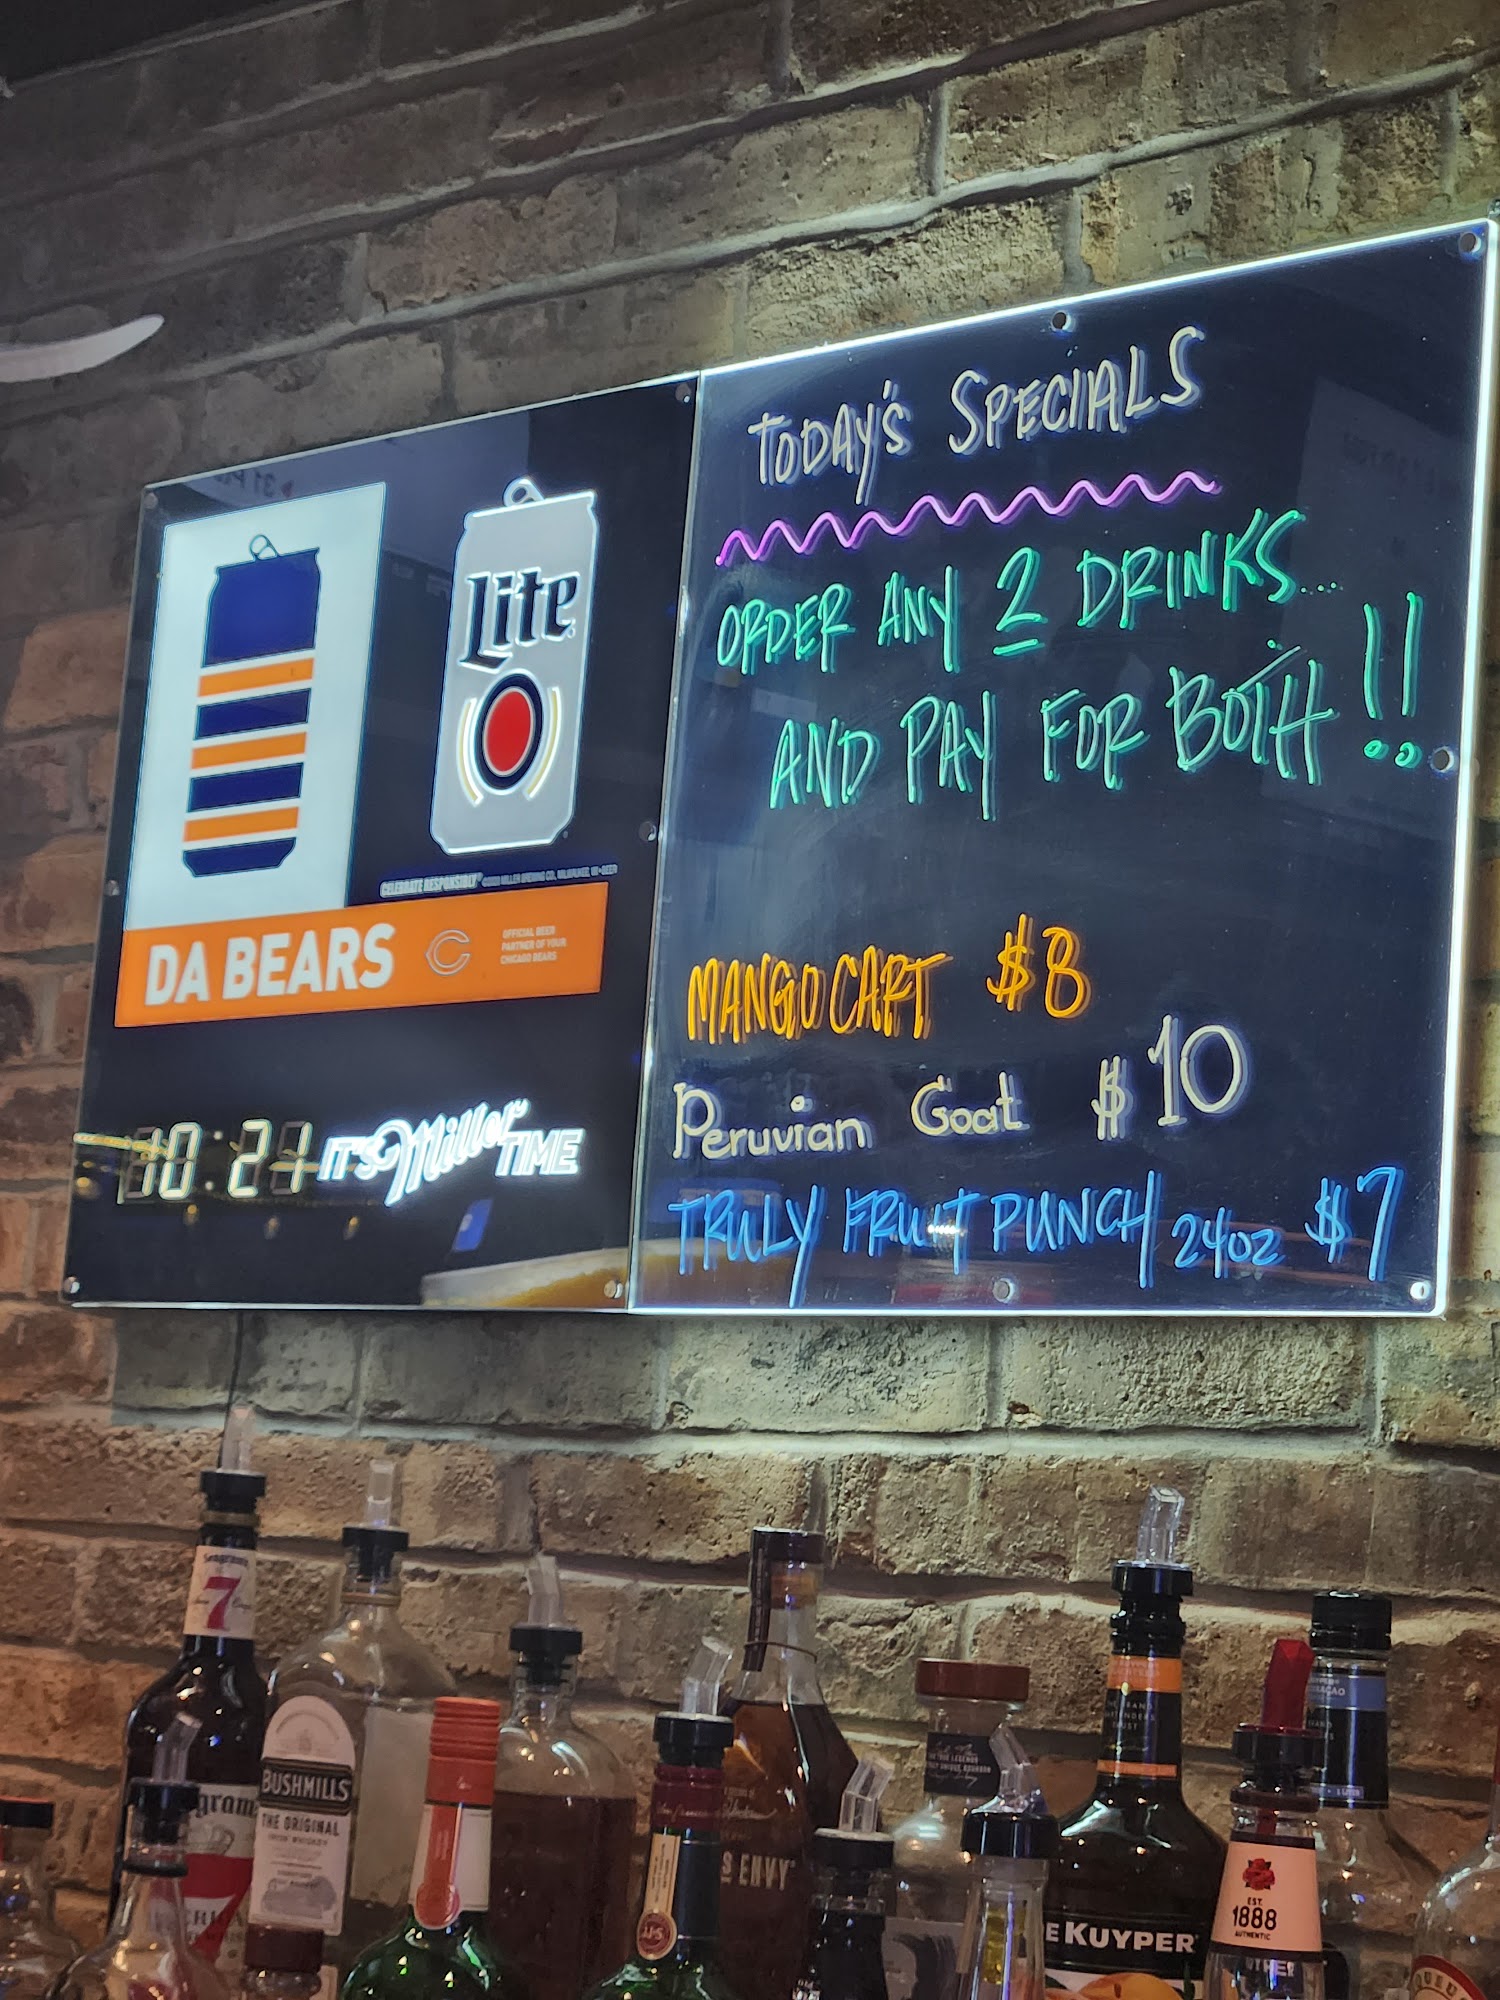 Lite
CELEBRATE RESPONSIBLY®
DA BEARS
OFFICIAL BEER
PARTNER OF YOUR
CHICAGO BEARS
10:21
IT'S Miller TIME
TODAY'S SPECIALS
ORDER ANY 2 DRINKS....
AND PAY FOR BOTH!!
MANGO CART $8
Peruvian Goat $10
TRULY FRUIT PUNCH 24oz $7
Seagram's
7
BUSHMILLS
THE ORIGINAL
IRISH WHISKEY
S ENVY
E KUYPER
EST.
1888
AUTHENTIC